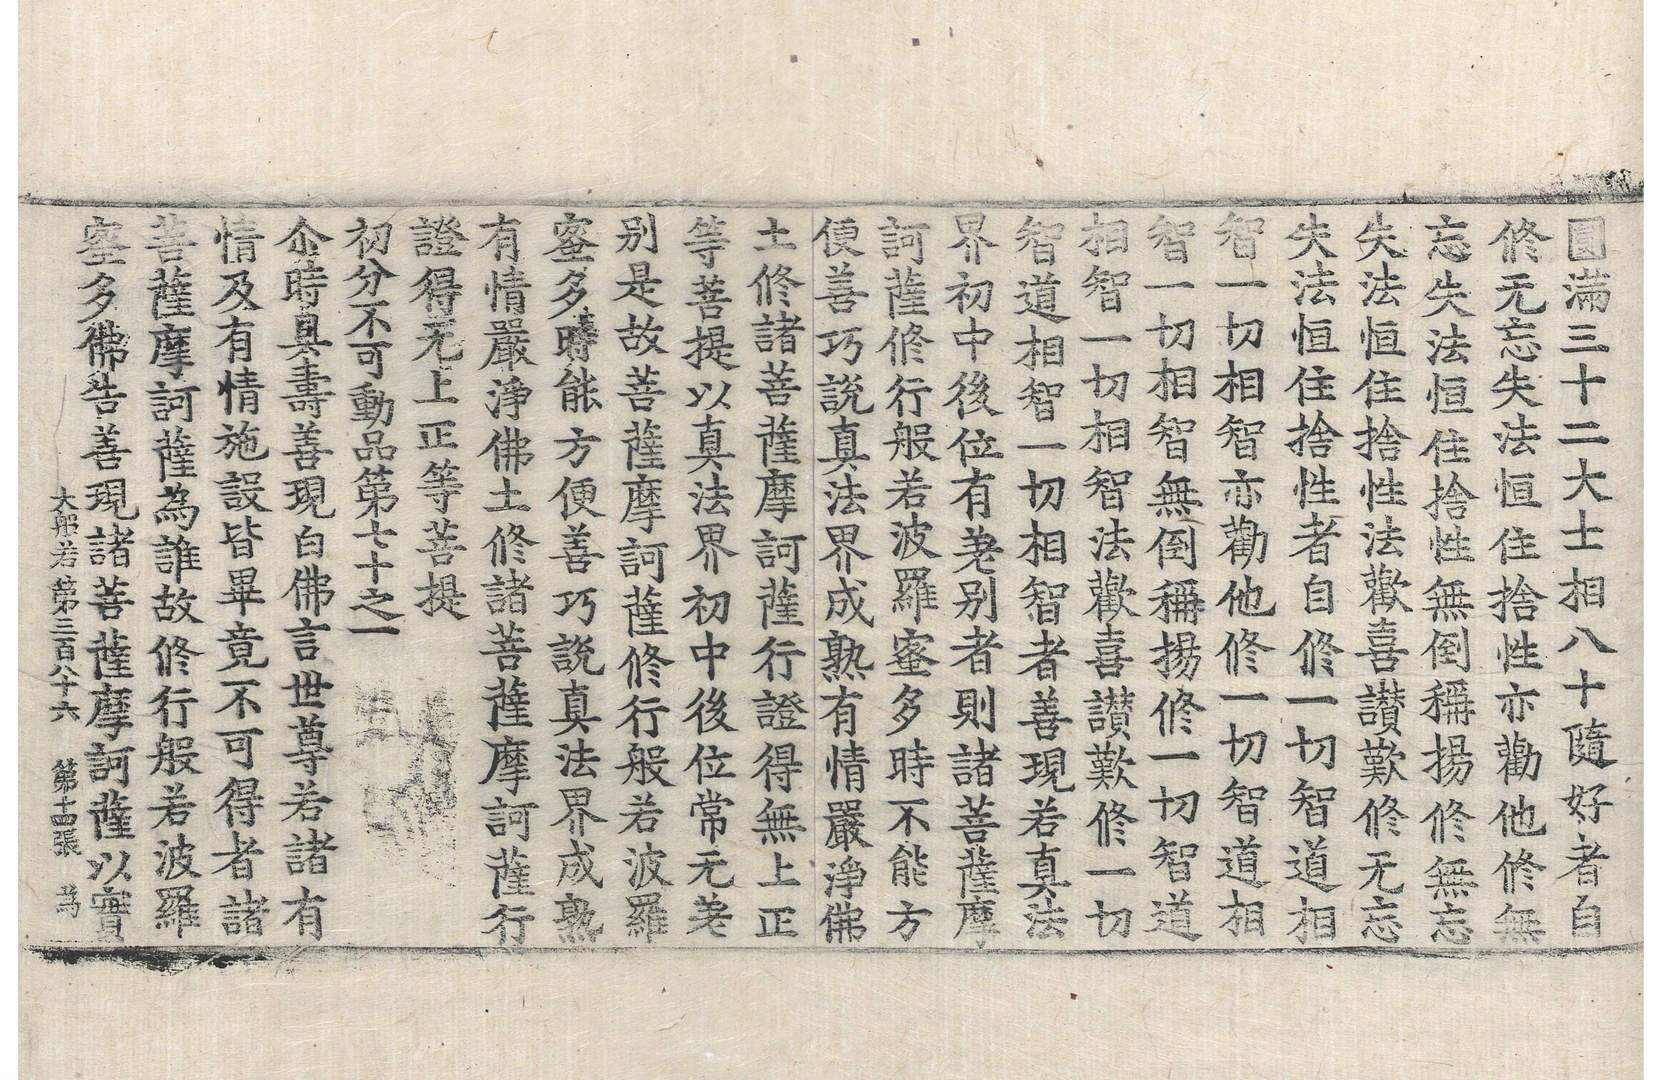 圓滿三十二大士相八十隨好者自
修无忘失法恒住捨性亦勸他修無
忘失法恒住捨性無倒稱揚修無忘
失法恒住捨性法歡喜讃歎修无忘
失法恒住捨性者自修一切智道相
智一切相智亦勸他修一切智道相
智一切相智無倒稱揚修一切智道
相智一切相智法歡喜讃歎修一切
智道相智一切相智者善現若真法
界初中後位有差别者則諸菩薩摩
訶薩修行般若波羅蜜多時不能方
便善巧說真法界成熟有情嚴淨佛
土修諸菩薩摩訶薩行證得無上正
等菩提以真法界初中後位常无差
别是故菩薩摩訶薩修行般若波羅
蜜多時能方便善巧說真法界成熟
有情嚴淨佛土修諸菩薩摩訶薩行
證得无上正等菩提
初分不可動品第七十之一
尒時具壽善現白佛言世尊若諸有
情及有情施設皆畢竟不可得者諸
菩薩摩訶薩為誰故修行般若波羅
蜜多佛告善現諸菩薩摩訶薩以實
大般若第三百八十六 第十四張 為